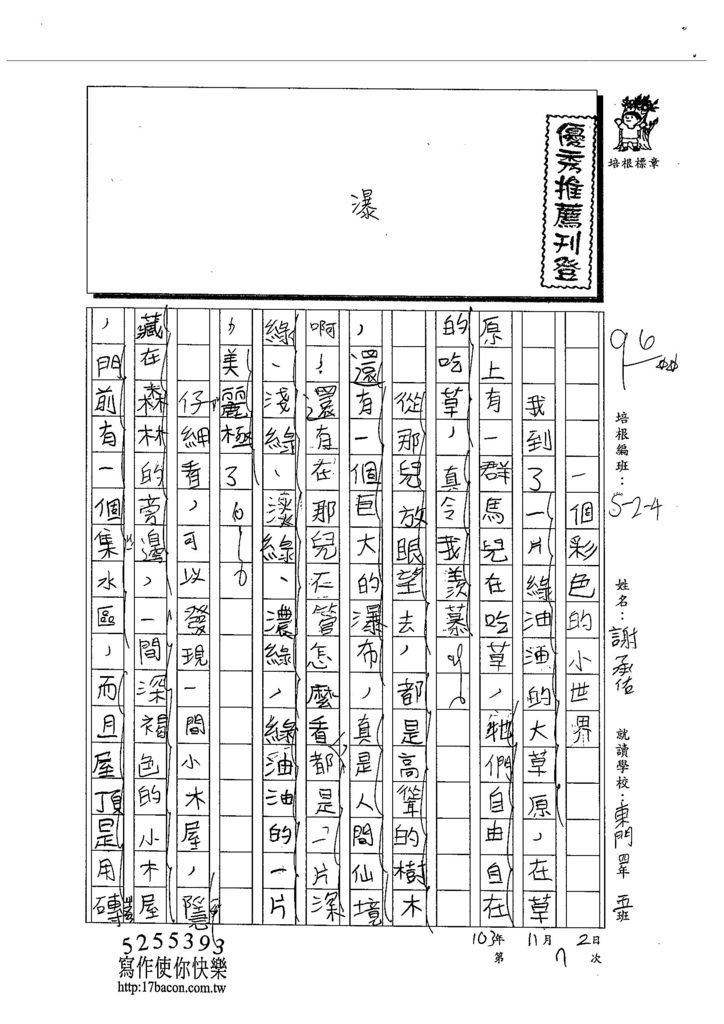 培根標章
優秀推薦刊登
瀑
96
培根編班：5-2-4
姓名：謝承佑
就讀學校：東門四年五班
103年11月2日
第7次
一個彩色的小世界
我到了一片綠油油的大草原，在草
原上有一群馬兒在吃草，牠們自由自在
的吃草，真令我羨慕。
從那兒放眼望去，都是高聳的樹木
，還有一個巨大的瀑布，真是人間仙境
啊！還有在那兒不管怎麼看都是一片深
綠、淺綠、淡綠、濃綠，綠油油的一片
，美麗極了。
仔細看，可以發現一間小木屋，隱
藏在森林的旁邊，一間深褐色的小木屋
，門前有一個集水區，而且屋頂是用磚
5255393
寫作使你快樂
http:17bacon.com.tw